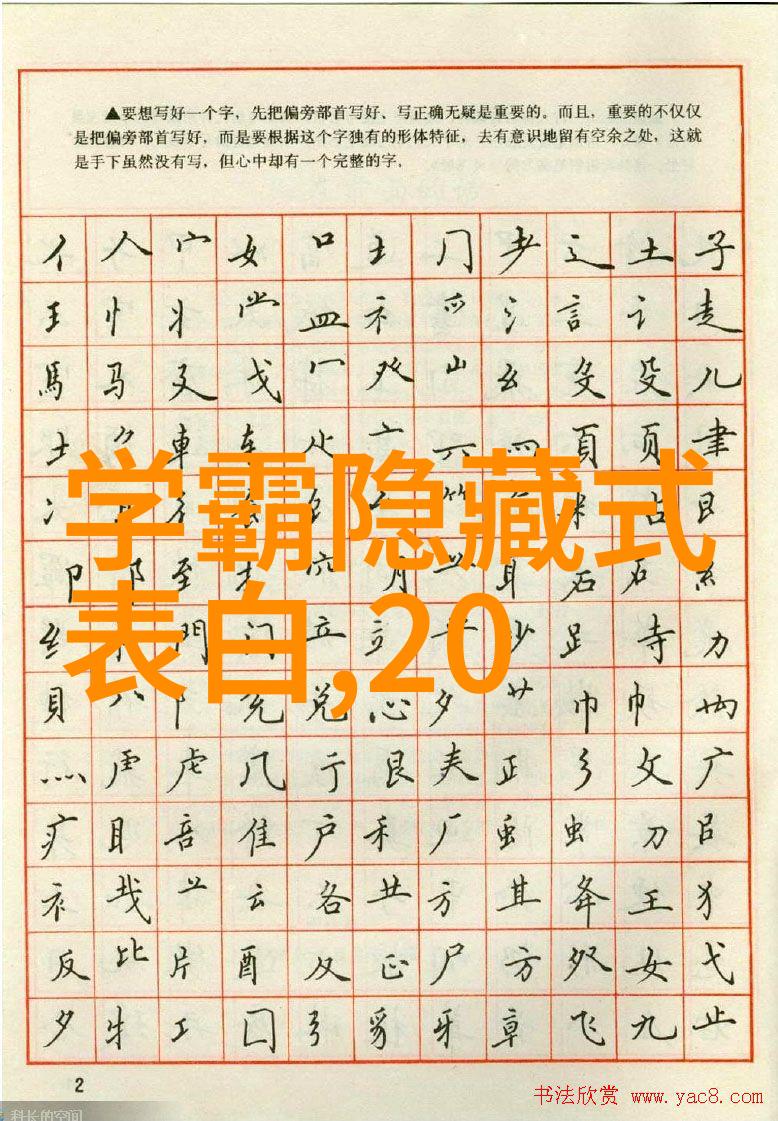 ▲要想写好一个字，先把偏旁部首写好、写正确无疑是重要的。而且，重要的不仅仅
是把偏旁部首写好，而是要根据这个字独有的形体特征，去有意识地留有空余之处，这就
是手下虽然没有写，但心中却有一个完整的字。
亻 人 宀 女 口 土 门 耂 辶 土 子
王 忄 丬 龸 皿 礻 氵 言 讠 走
馬 马 廴 戈 冖 癶 山 幺 殳 儿
士 車 车 亠 六 罒 頁 页 聿
冫 米
卩 阝 至 穴 月 耳 石 石 糹
纟 門 门 立 立 少 足 寺 力
貝 八 阝 兑 心 夕 艹 巾 巾
灬 虍 虎 几 亍 艮 夫 正 彡 文 广
疒 目 音 隹 户 禾 厂 虫 虫 刀 吕
衤 云 各 廾 方 其 夅 王 犭
反 比 片 酉 及 正 尸 方 女 弋
夕 牛 工 囗 弓 豸 牙 章 飞 九 止
学霸隐藏式
表白,20
2
书法欣赏 www.yac8.com
科长的空间